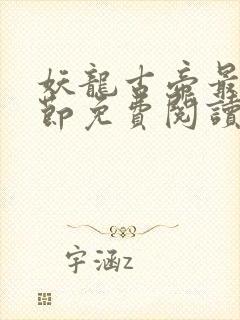 妖龍古帝最
節免費閱讀
字涵z